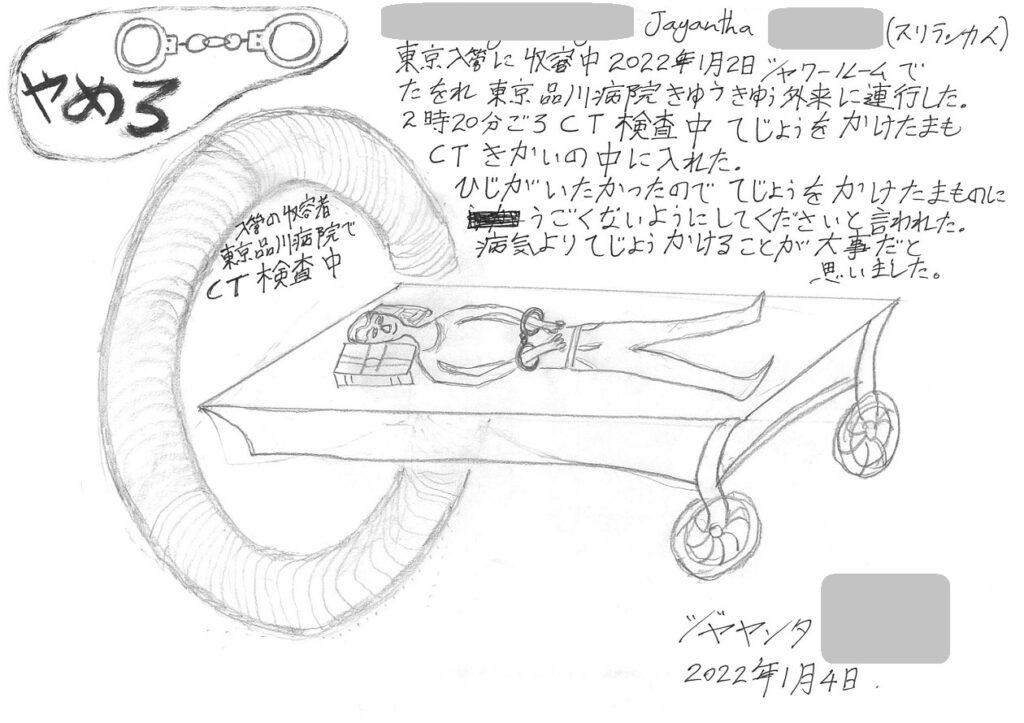 やめろ
Jayantha (スリランカ人)
東京入管に収容中 2022年1月2日 シャワールームで
たをれ 東京品川病院きゅうきゅう外来に連行した。
2時20分ごろ CT 検査中 てじょうを かけたまも
CT きかいの中に入れた。
ひじがいたかったので てじょうを かけたまものに
うごくないようにしてくださいと言われた。
病気よりてじょうかけることが大事だと
思いました。
入管の収容者
東京品川病院で
CT 検査中
ジャヤンタ
2022年1月4日.